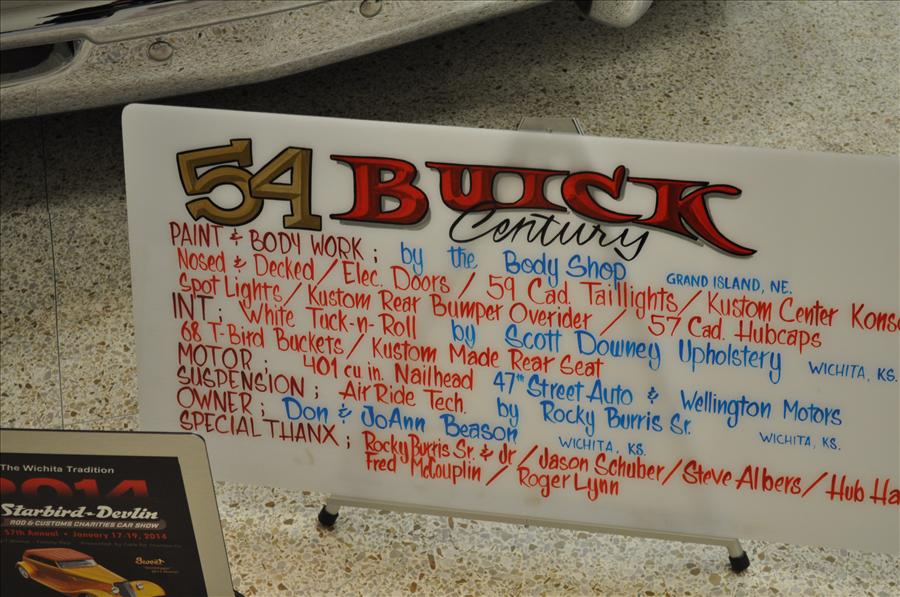 54 BUICK
Century
PAINT & BODY WORK ; by the Body Shop GRAND ISLAND, NE.
Nosed & Decked / Elec. Doors / 59 Cad. Taillights / Kustom Center Kons
Spot Lights / Kustom Rear Bumper Overider / 57 Cad. Hubcaps
INT. ; White Tuck-n-Roll by Scott Downey Upholstery WICHITA, KS.
68 T-Bird Buckets / Kustom Made Rear Seat
MOTOR ; 401 cu in. Nailhead 47th Street Auto & Wellington Motors
SUSPENSION ; Air Ride Tech. by Rocky Burris Sr. WICHITA, KS.
OWNER ; Don & JoAnn Beason WICHITA, KS.
SPECIAL THANX ; Rocky Burris Sr. & Jr. / Jason Schuber / Steve Albers / Hub Ha
Fred McCouplin / Roger Lynn
The Wichita Tradition
2014
Starbird-Devlin
ROD & CUSTOMS CHARITIES CAR SHOW
57th Annual • January 17-19, 2014